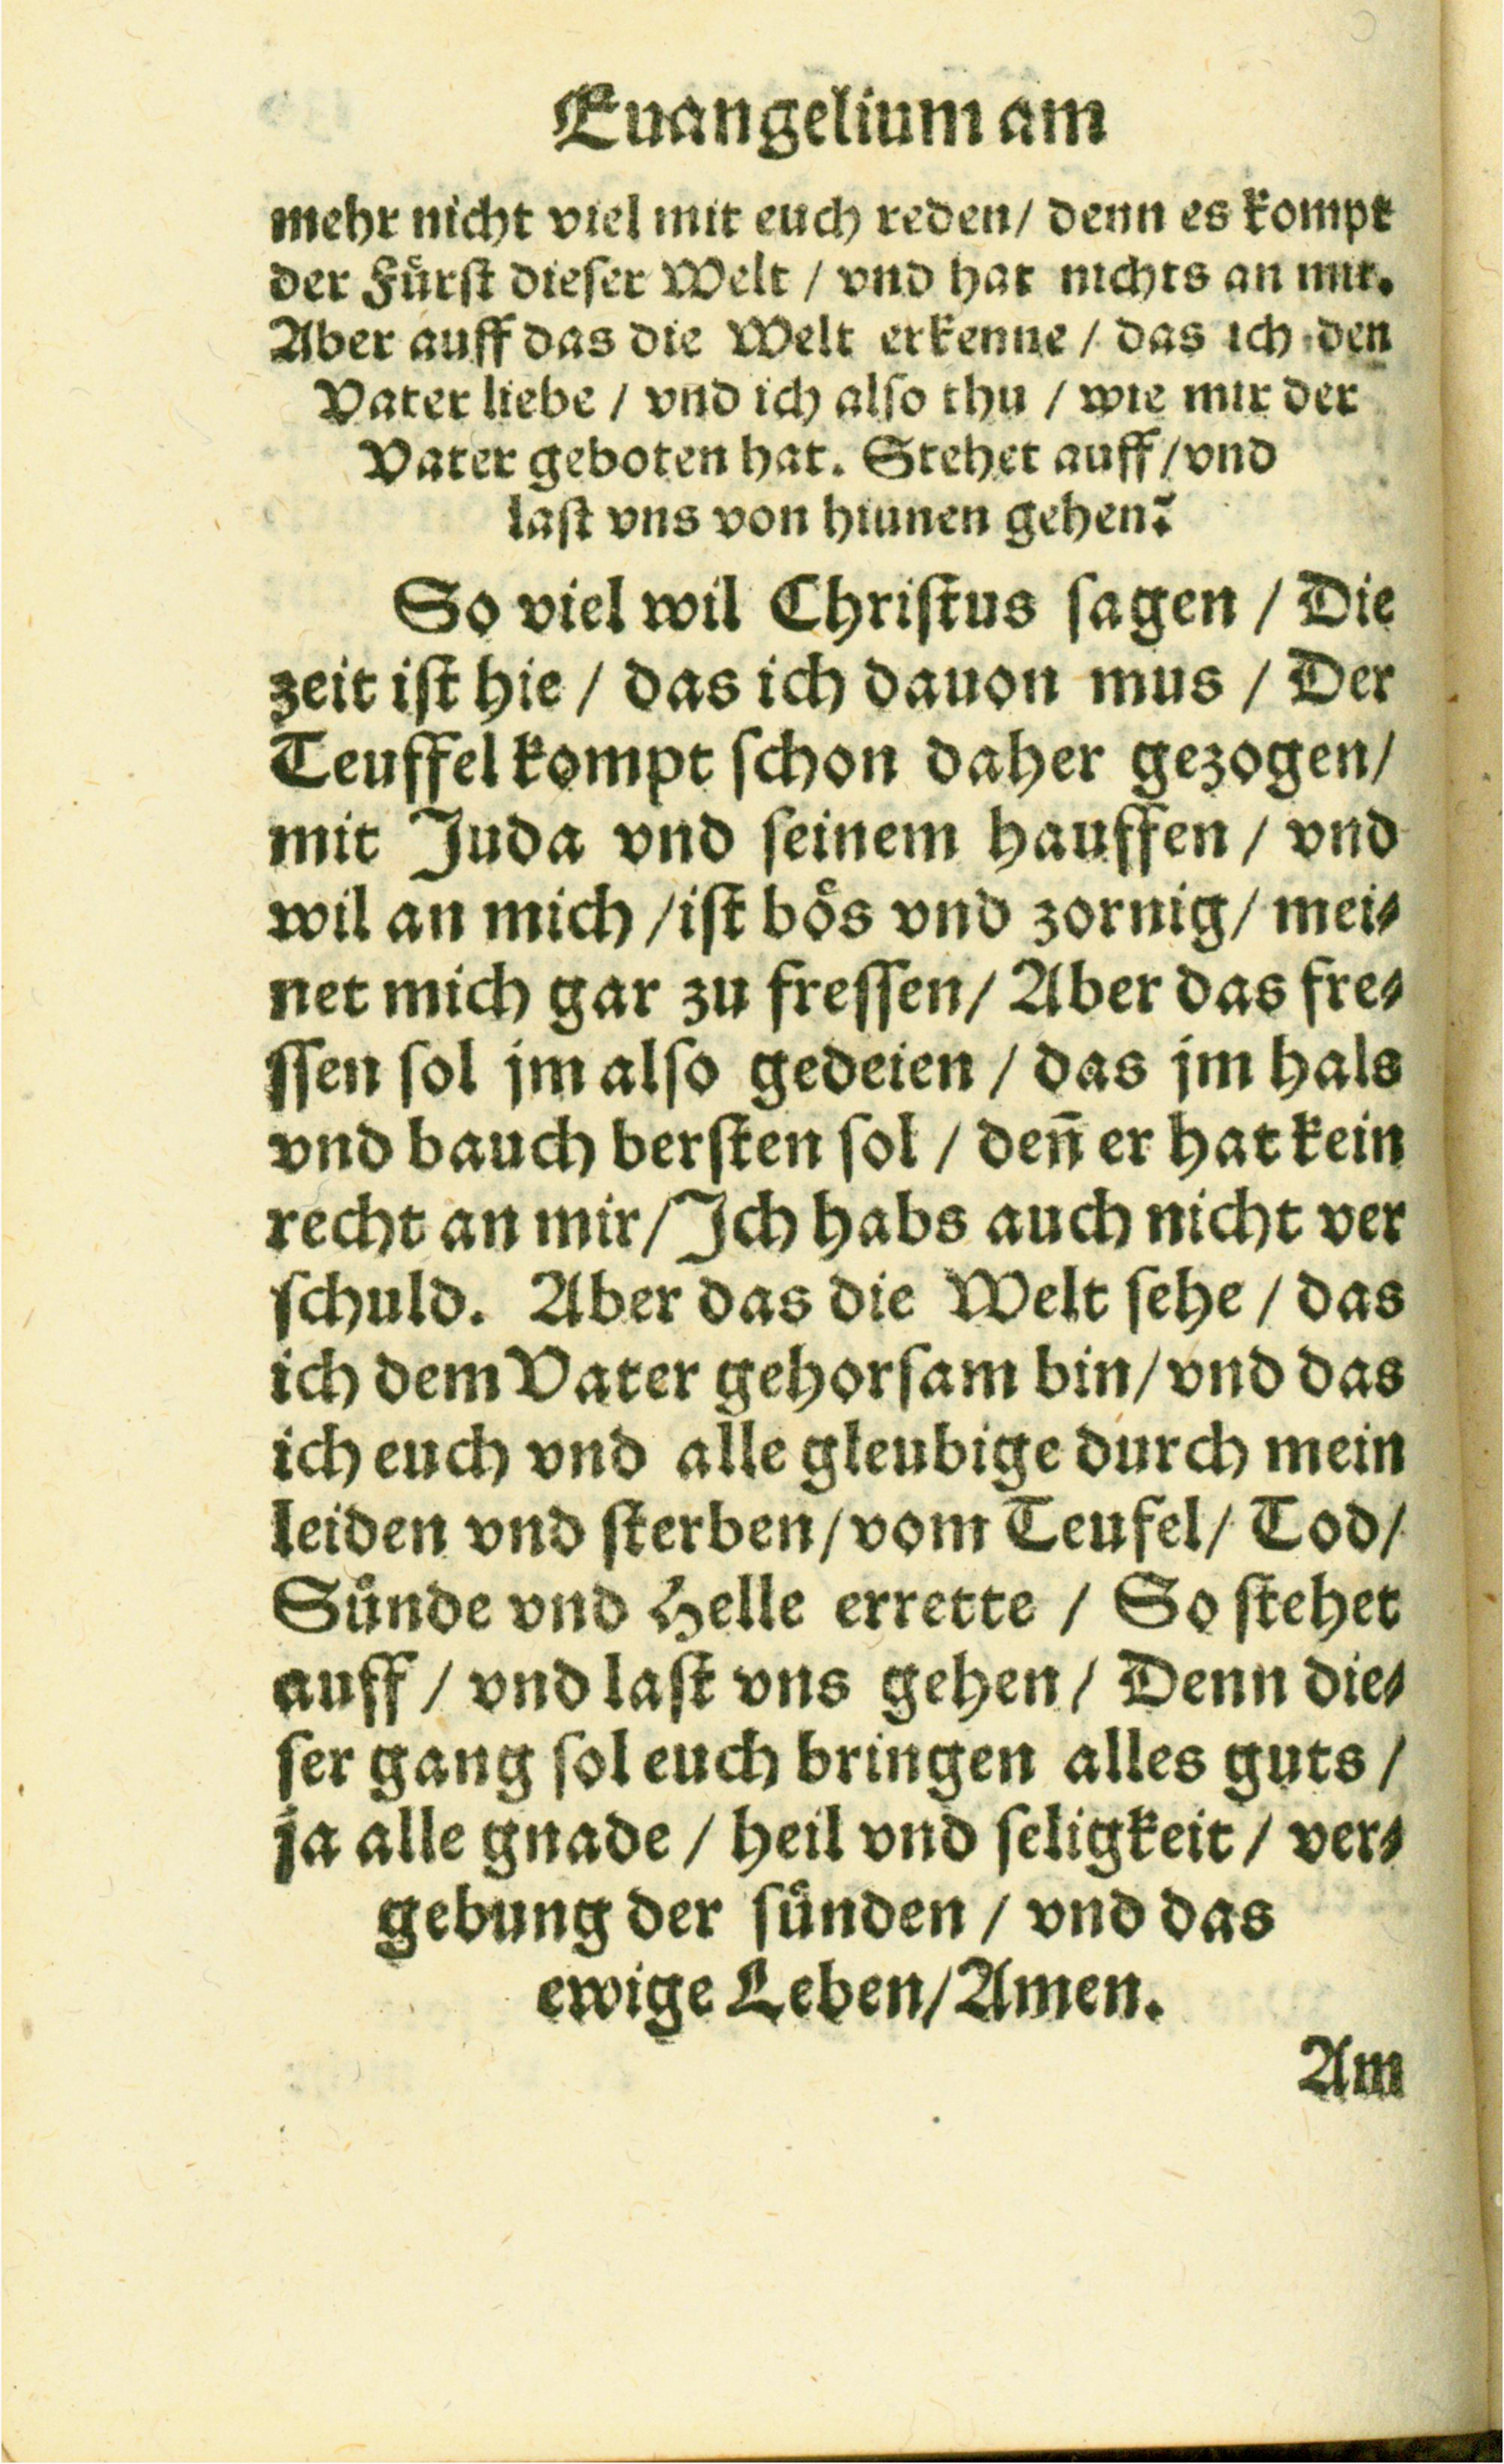 Euangelium am
mehr nicht viel mit euch reden/ denn es kompt
der Fuͤrſt dieſer Welt / vnd hat nichts an mir.
Aber auff das die Welt erkenne / das ich den
Vater liebe / vnd ich alſo thu / wie mir der
Vater geboten hat. Stehet auff/ vnd
laſt vns von hinnen gehen.
So viel wil Chriſtus ſagen / Die
zeit iſt hie / das ich dauon mus / Der
Teuffel kompt ſchon daher gezogen/
mit Juda vnd ſeinem hauffen / vnd
wil an mich /iſt boͤs vnd zornig/ mei⸗
net mich gar zu freſſen/ Aber das fre⸗
ſſen ſol jm alſo gedeien / das jm hals
vnd bauch berſten ſol / deñ er hat kein
recht an mir/ Ich habs auch nicht ver
ſchuld. Aber das die Welt ſehe / das
ich dem Vater gehorſam bin/ vnd das
ich euch vnd alle gleubige durch mein
leiden vnd ſterben/ vom Teufel/ Tod/
Suͤnde vnd Helle errette / So ſtehet
auff / vnd laſt vns gehen / Denn die⸗
ſer gang ſol euch bringen alles guts /
ja alle gnade / heil vnd ſeligkeit / ver⸗
gebung der ſuͤnden / vnd das
ewige Leben/ Amen.
Am